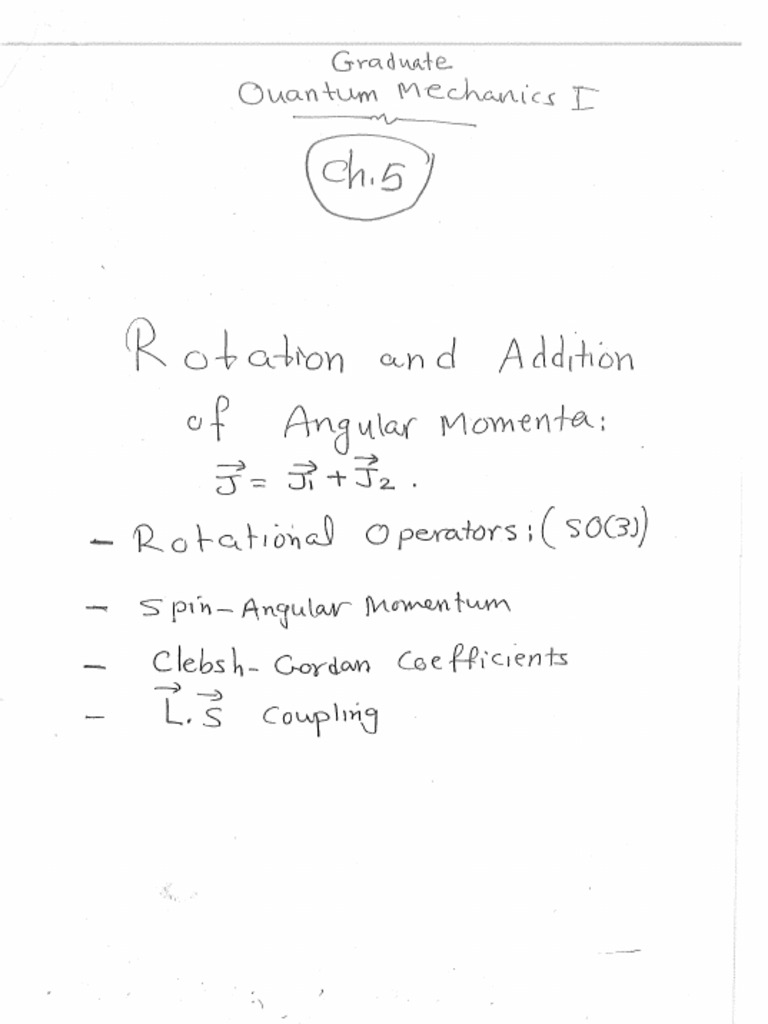 Graduate
Quantum Mechanics I
Ch.5
Rotation and Addition
of Angular Momenta:
J⃗ = J⃗1 + J⃗2 .
- Rotational Operators: (SO(3))
- Spin-Angular Momentum
- Clebsh-Gordan Coefficients
- L⃗.S⃗ Coupling